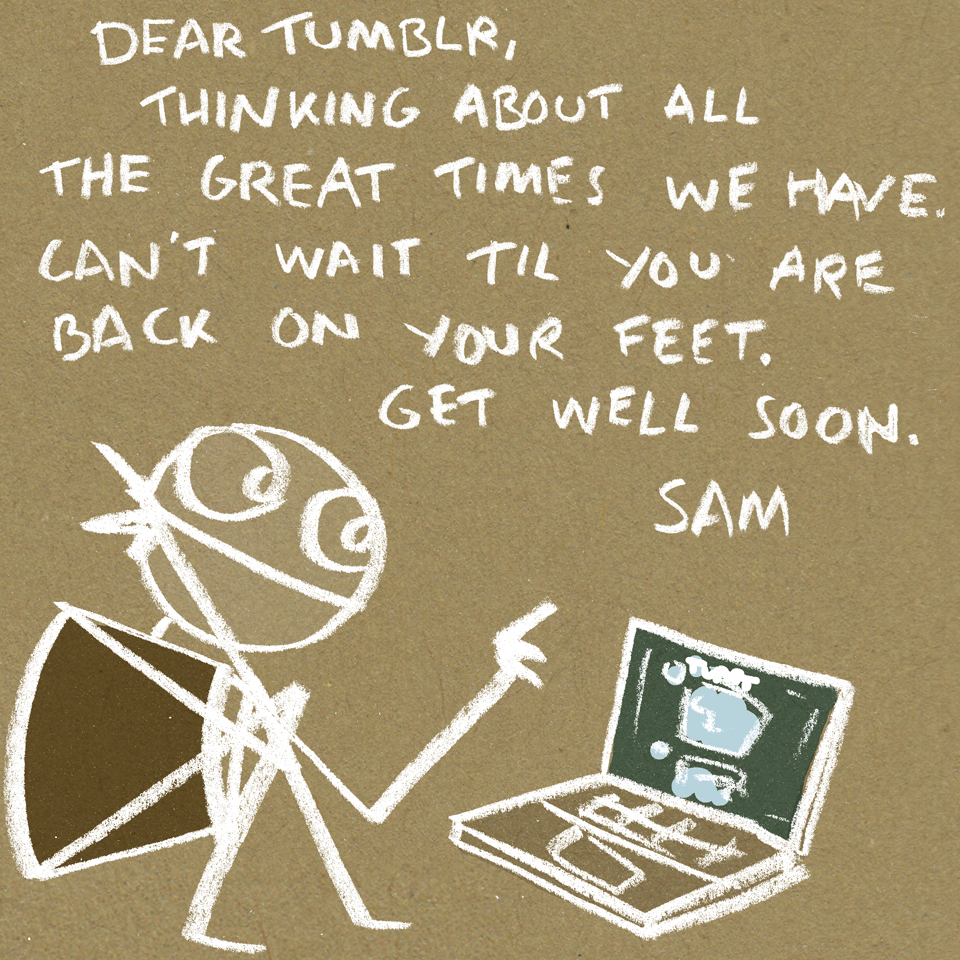 DEAR TUMBLR,
THINKING ABOUT ALL
THE GREAT TIMES WE HAVE.
CAN'T WAIT TIL YOU ARE
BACK ON YOUR FEET.
GET WELL SOON.
SAM